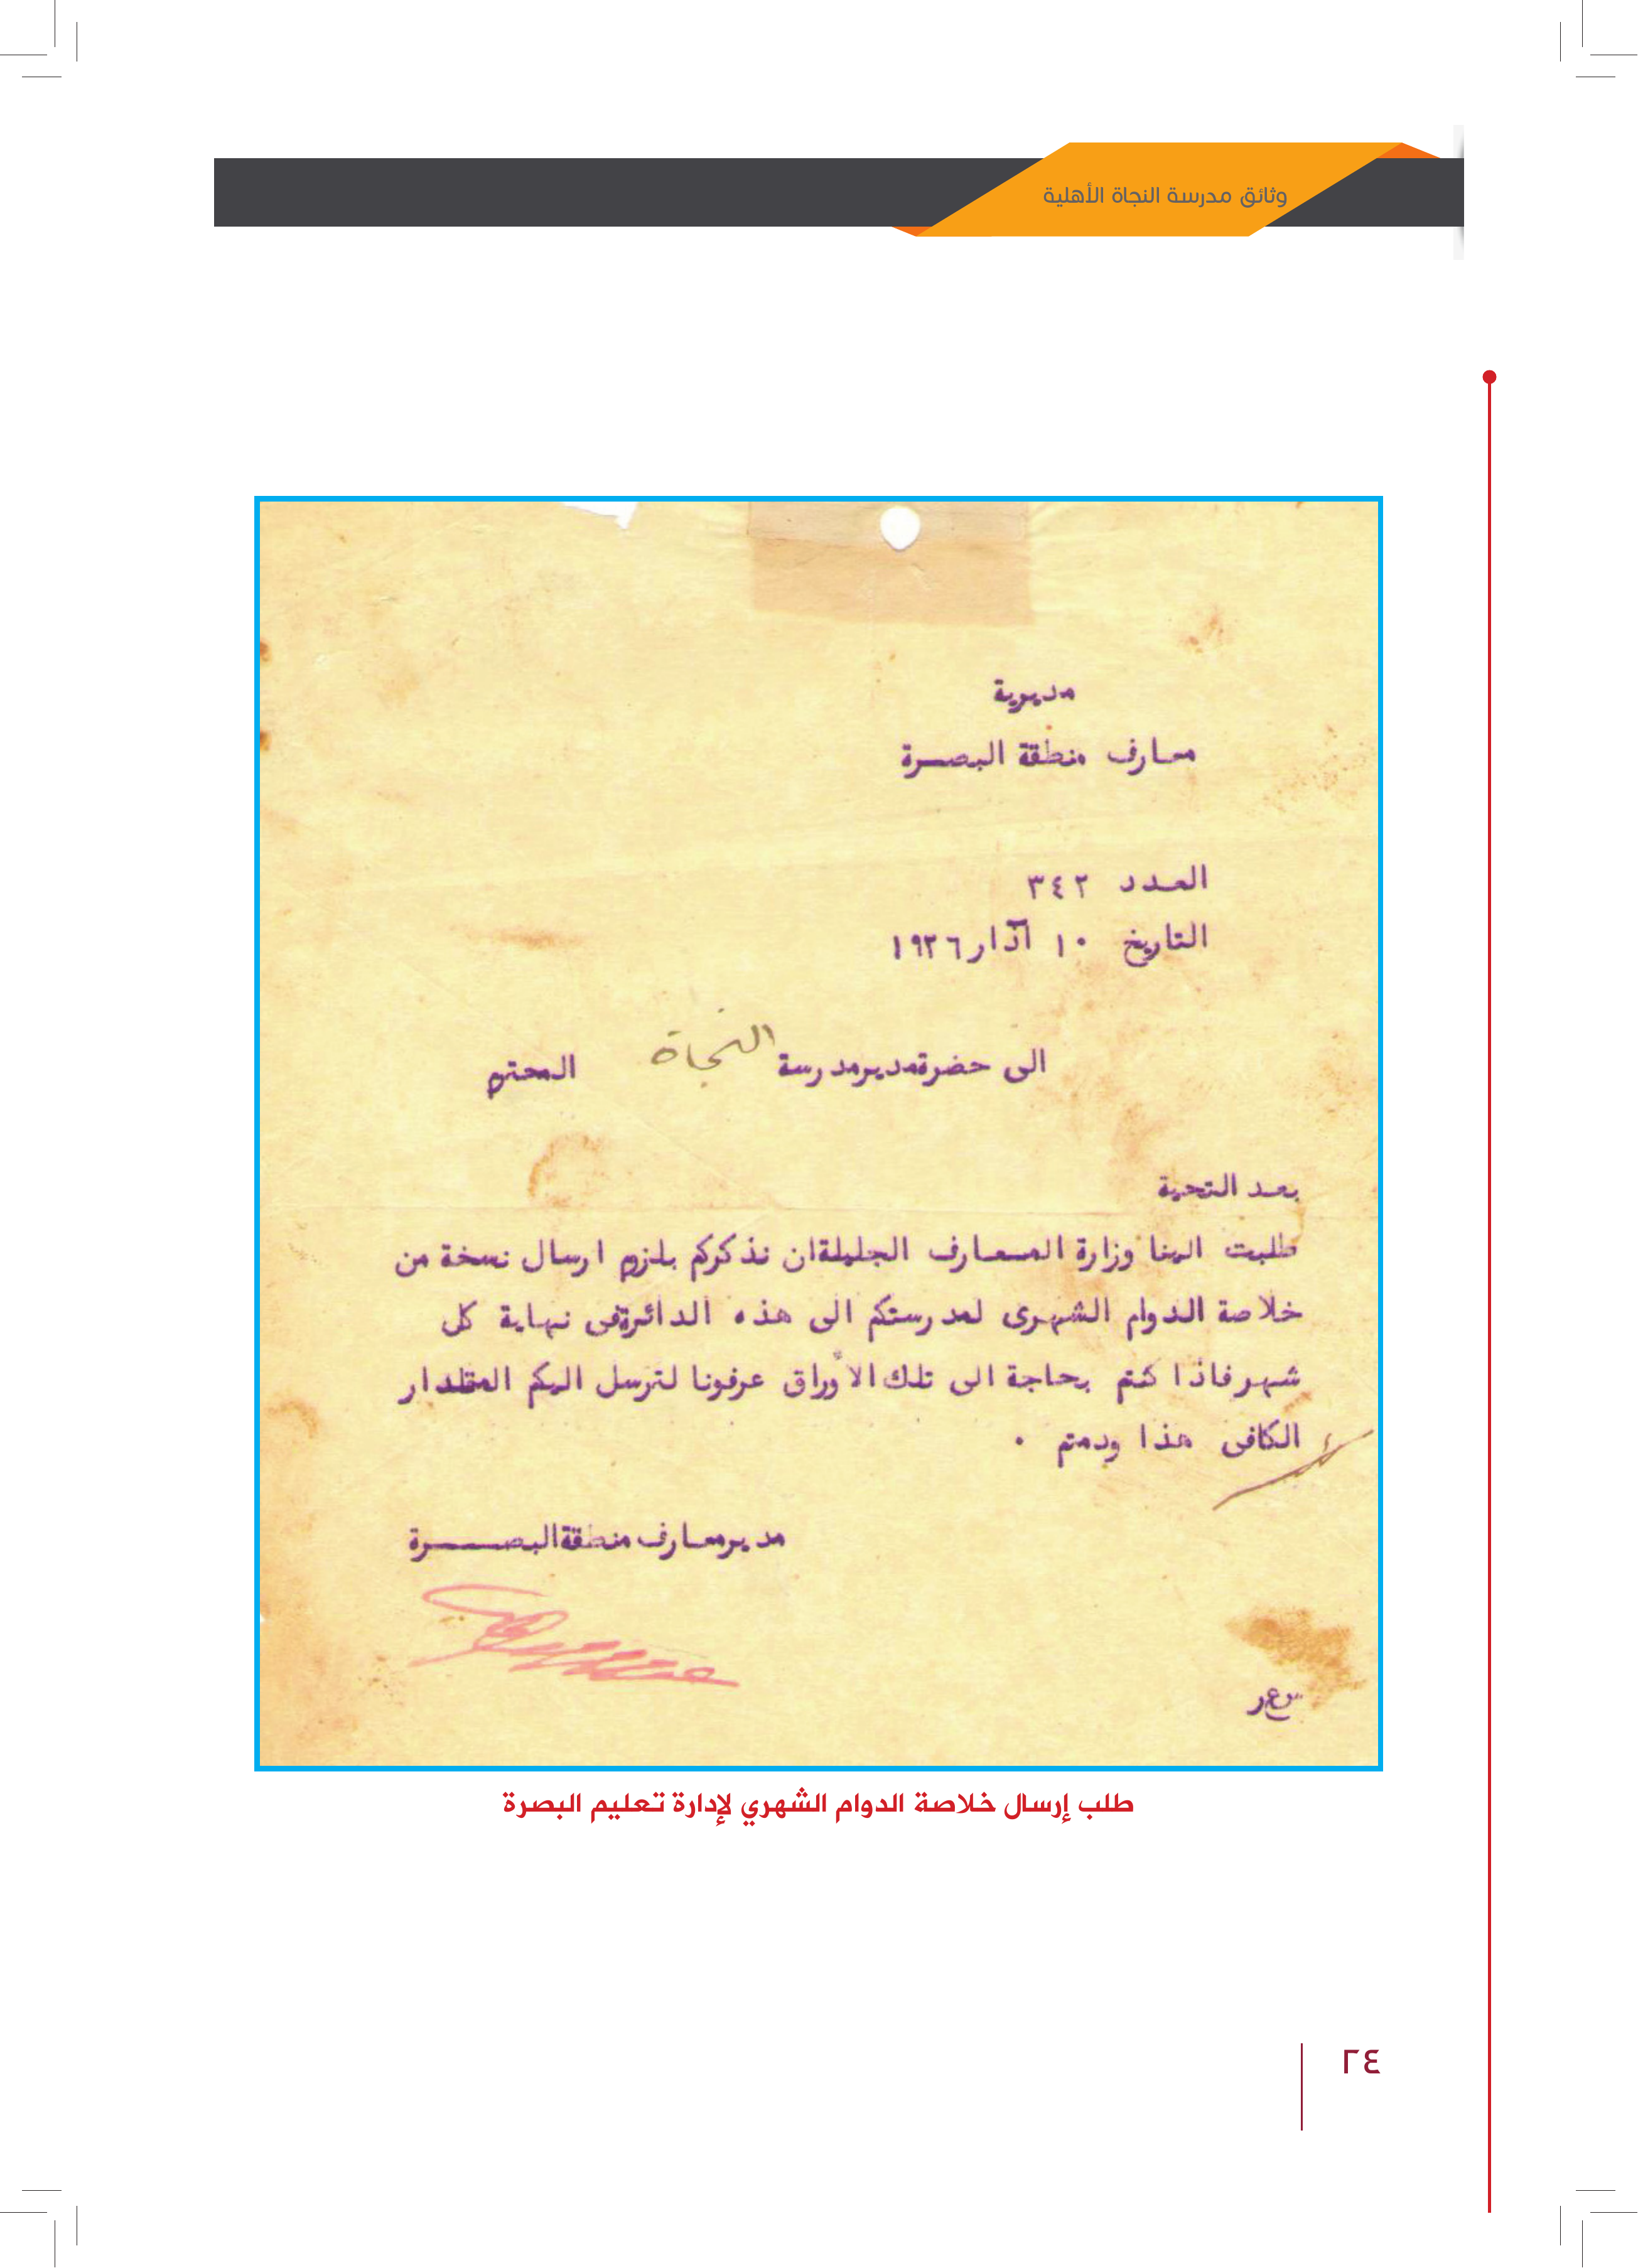 وثائق مدرسة النجاة الأهلية
مديرية
معارف منطقة البصرة
العدد ٣٤٢
التاريخ ١٠ آذار ١٩٣٦
الى حضرة مدير مدرسة النجاة المحترم
بعد التحية
طلبت الينا وزارة المعارف الجليلة ان نذكركم بلزوم ارسال نسخة من
خلاصة الدوام الشهرى لمدرستكم الى هذه الدائرة فى نهاية كل
شهر فاذا كنتم بحاجة الى تلك الأوراق عرفونا لترسل اليكم المقدار
الكافى هذا ودمتم .
مدير معارف منطقة البصرة
طلب إرسال خلاصة الدوام الشهري لإدارة تعليم البصرة
٢٤